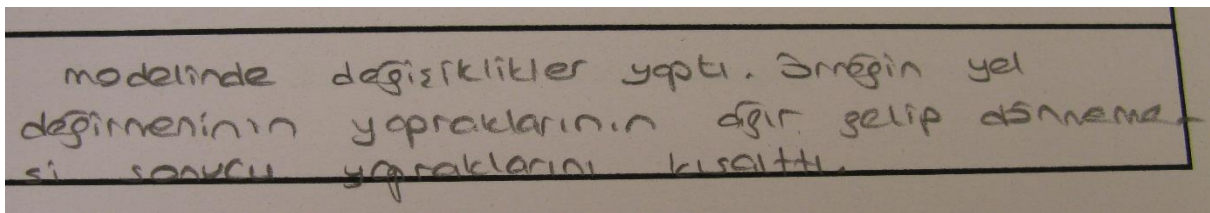 modelinde değişiklikler yaptı. Örneğin yel
değirmeninin yapraklarının ağır gelip dönmeme-
si sonucu yapraklarını kısalttı.